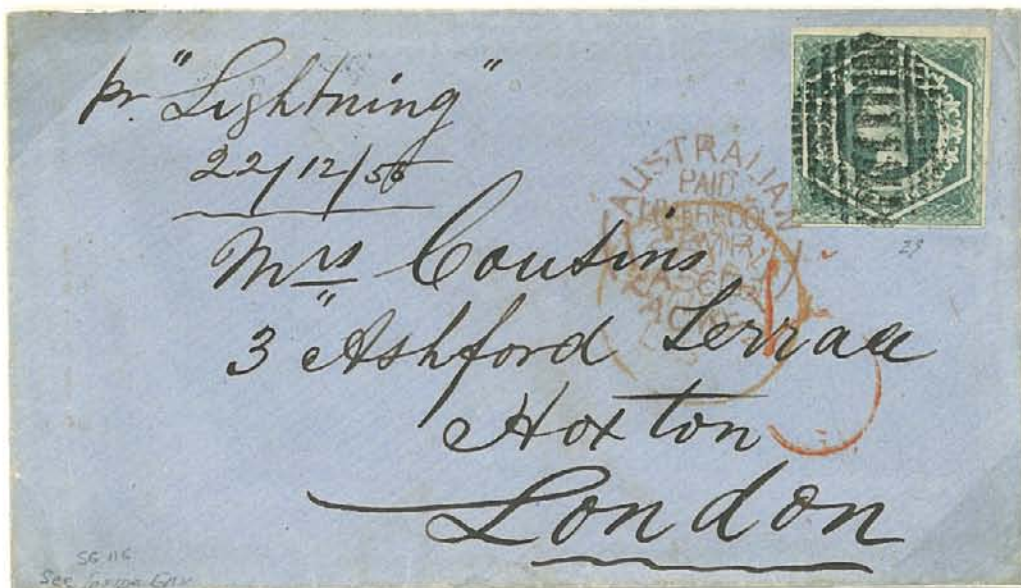 pr. "Lightning"
22/12/56
Mrs Cousins
3 Ashford Terrace
Hoxton
London
AUSTRALIAN
PAID
LIVERPOOL
PACKET
29
SG 116
See